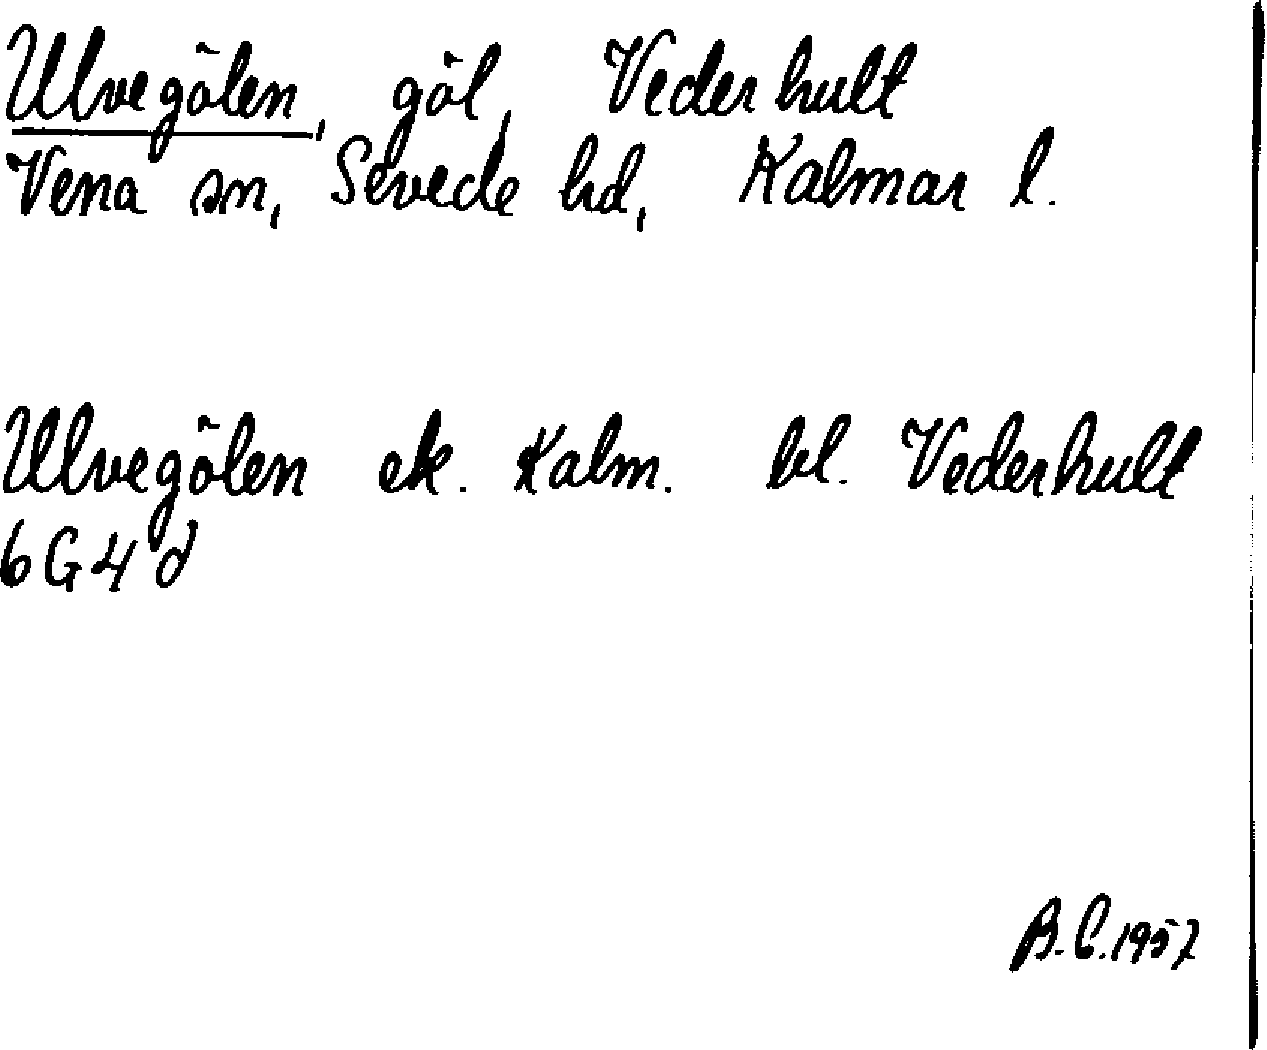 Ulvegölen, göl, Vederhult
Vena sn, Sevede hd, Kalmar l.
Ulvegölen ek. Kalm. bl. Vederhult
6G4d
B.C. 1957